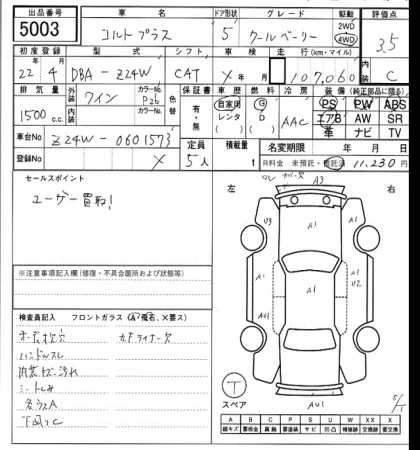 出品番号 車名 ドア形状 グレード 駆動 評価点
5003 コルトプラス 5 クールベーリー 2WD 4WD 3.5
初度登録 型式 シフト 車検 走行(km・マイル) 内装
22年4月 DBA-Z24W CAT X年月 107,060 C
排気量 外装 カラーNo. 色替 保証書 車歴 燃料 冷房 装備(純正部品に限る)
1500c.c. ワイン P26 有・無 自家用 レンタ G D AAC PS PW ABS
エアB AW SR
革 ナビ TV
車台No Z24W-0601573 定員 積載量 名変期限 年月日
登録No X 5人 t R料金 未預託・預託済 11,230円
セールスポイント
ユーザー買取!
左 右
A3
U3 A1
A1 A1 A1 U2
※注意事項記入欄(修復・不具合箇所および改造等)
検査員記入 フロントガラス(A飛石、X要ス)
ハンドルスレ
内装キズ汚れ
シートしみ
各ウスA
下回りC
T
スペア
AU1
A B C P S U W XX X
線キズ 要板金 腐触 要塗装 サビ 凹凸 補修跡 交換済 要交換